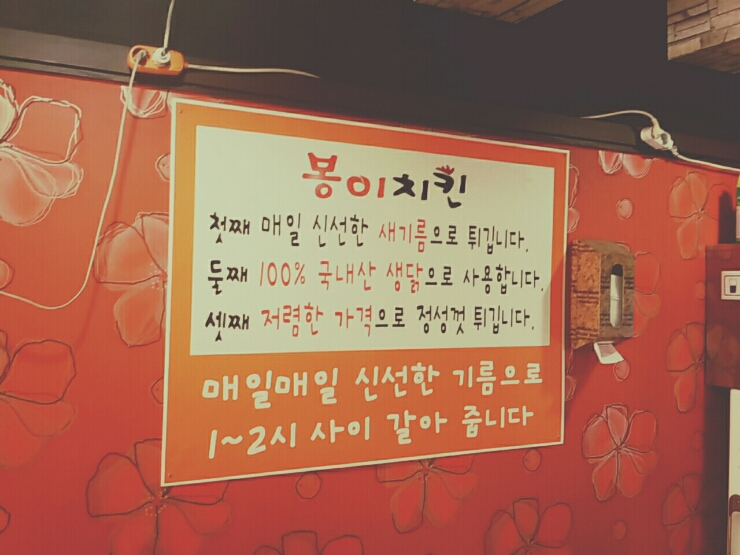 봉이치킨
첫째 매일 신선한 새기름으로 튀깁니다.
둘째 100% 국내산 생닭으로 사용합니다.
셋째 저렴한 가격으로 정성껏 튀깁니다.
매일매일 신선한 기름으로
1~2시 사이 갈아 줍니다